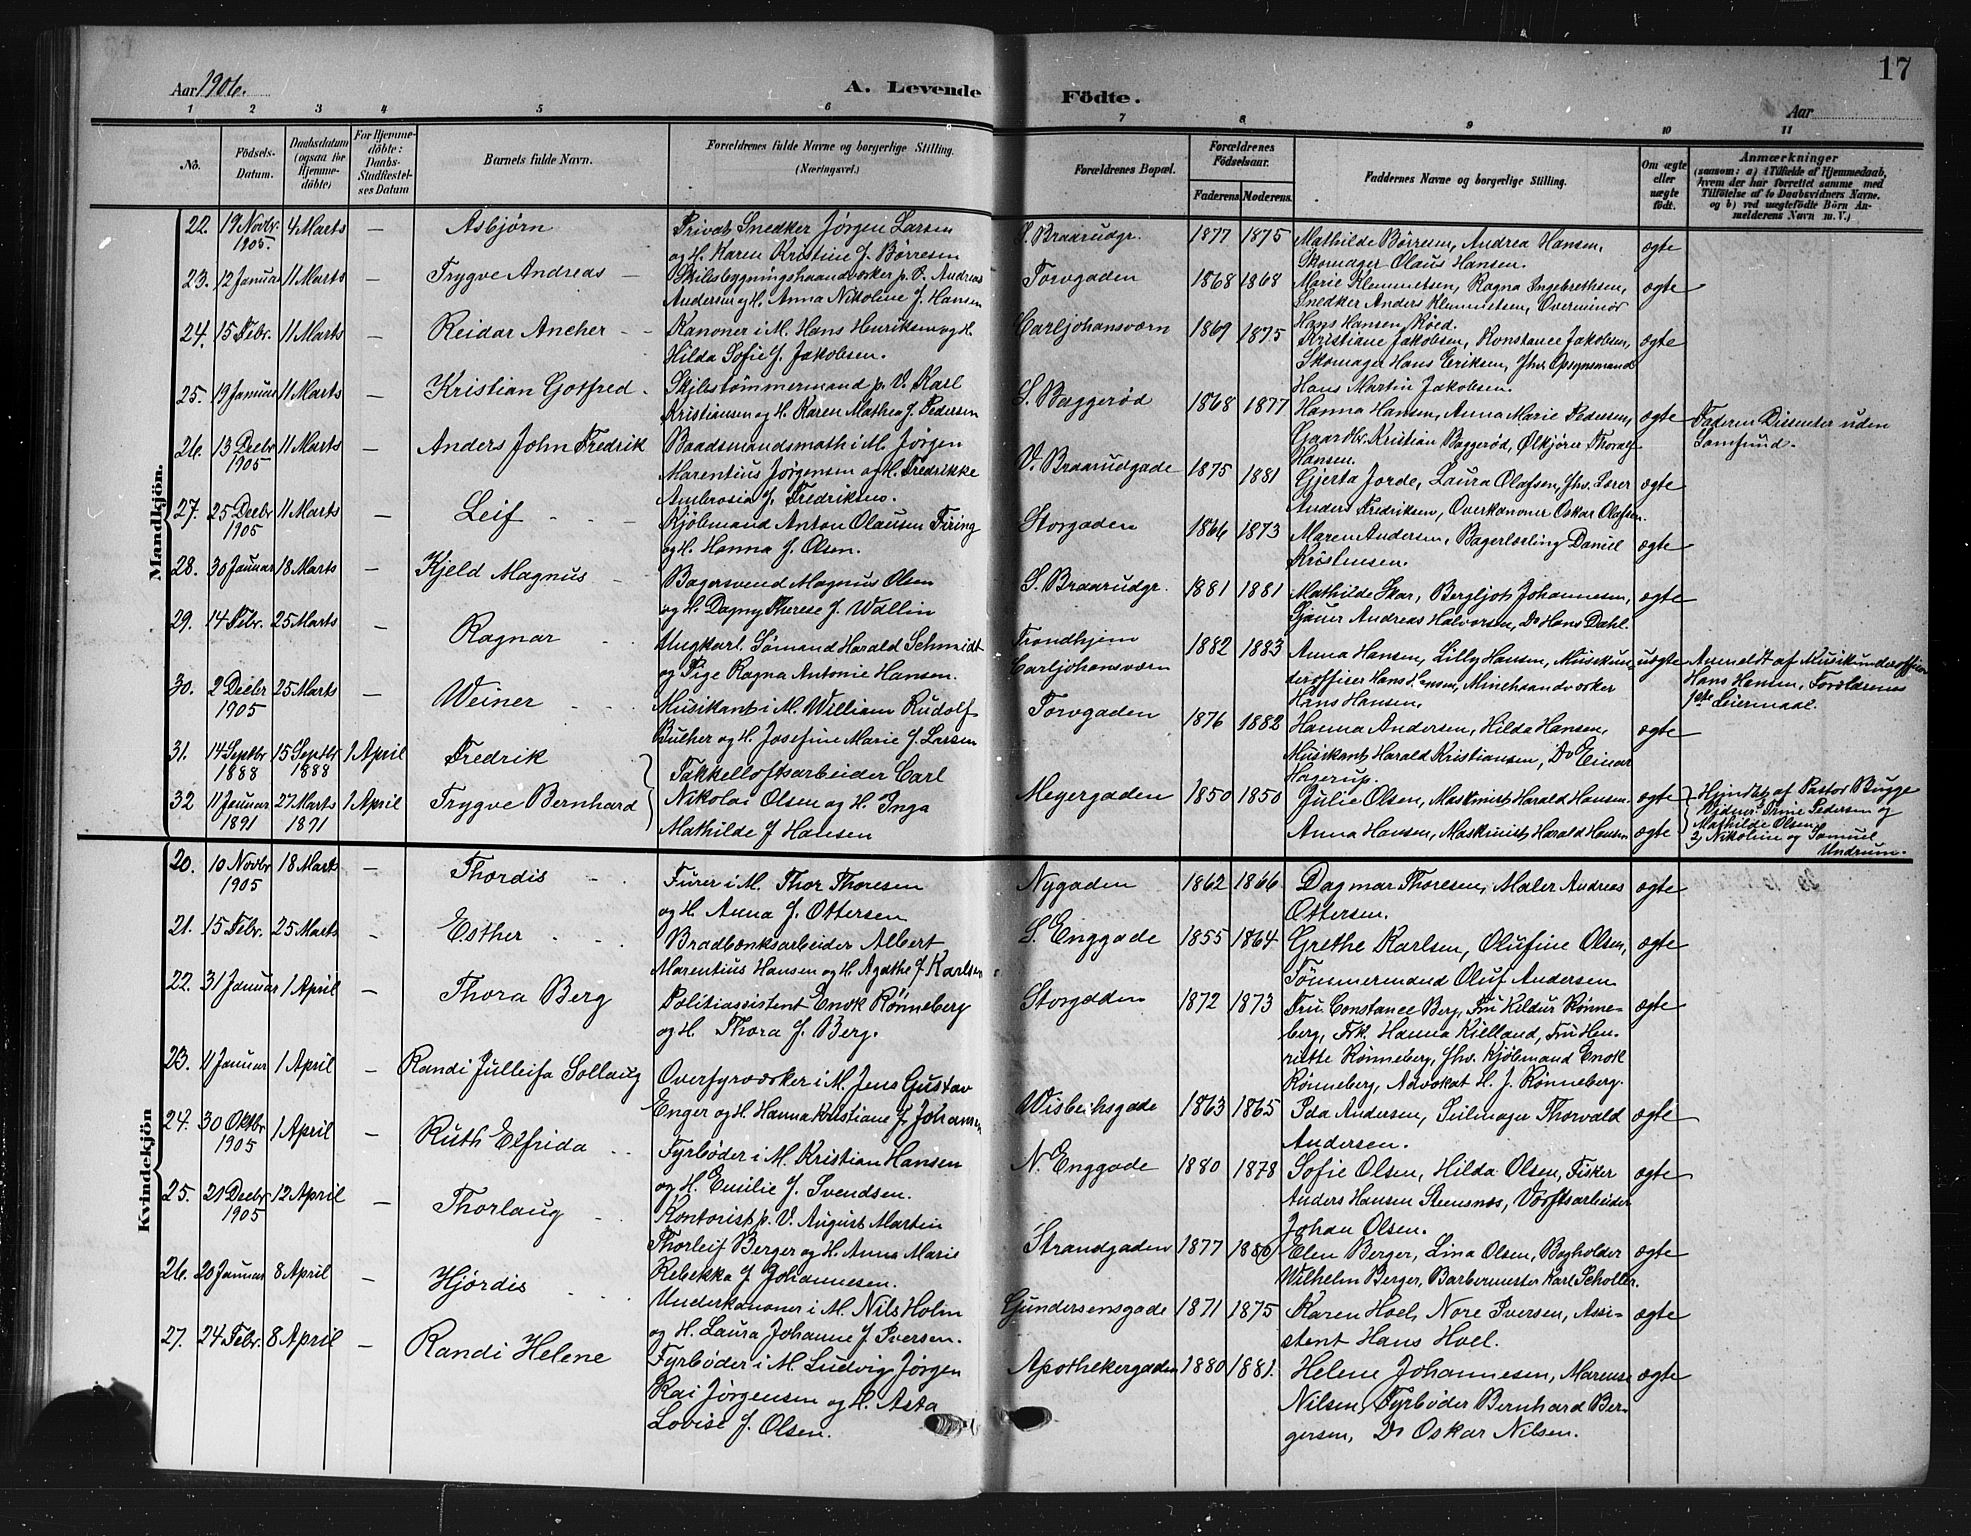 Aar 1906.
A. Levende Födte.
17
Aar
1 2 3 4 5 6 7 8 9 10 11
No.
Födsels-Datum.
Daabsdatum (ogsaa for Hjemme-döbte)
For Hjemme-döbte: Daabs-Stadfæstel-ses Datum
Barnets fulde Navn.
Forældrenes fulde Navne og borgerlige Stilling. (Næringsvei.)
Forældrenes Bopæl.
Forældrenes Födselsaar.
Faderens. Moderens.
Faddernes Navne og borgerlige Stilling.
Om ægte eller uægte født.
Anmærkninger
(saasom: a) i Tilfælde af Hjemmedaab, hvem der har forrettet samme med Tilföielse af to Daabsvidners Navne, og b) ved uægtefödte Börn An-melderens Navn m. V.)
Mandkjön.
22. 19 Novbr. 1905. 4 Marts — Asbjørn
Privat Snedker Jørgen Larsen
og H. Karen Kristine f. Børresen
S. Braarudgr. 1877 1875
Mathilde Børresen, Andrea Hansen,
Skomager Olaus Hansen.
ægte
23. 12 Januar 11 Marts — Trygve Andreas
Skibsbygningshaandværker p. V. Andreas
Andersen og H. Anna Nikoline f. Hansen
Torvgaden 1868 1868
Marie Klemmetsen, Ragna Ingebrethsen,
Snedker Anders Klemmetsen, Overminör
Hans Hansen Röed.
ægte
24. 15 Febr. 11 Marts — Reidar Ancher
Kanoner i M. Hans Henriksen og H.
Hilda Sofie f. Jakobsen.
Carljohansværn 1869 1875
Kristiane Jakobsen, Konstance Jakobsen,
Skomager Hans Eriksen, fhv. Opsynsmand
Hans Martin Jakobsen.
ægte
25. 19 Januar 11 Marts — Kristian Gotfred
Skibstømmermand p. V. Karl
Kristiansen og H. Karen Mathea f. Pedersen
S. Baggerød 1868 1877
Hanna Hansen, Anna Marie Pedersen,
Gaardbr. Kristian Baggerød, Ølkjører Thoralf
Hansen.
ægte
Faderen Dissenter uden
Samfund.
26. 13 Decbr 1905 11 Marts — Anders John Fredrik
Baadsmandsmath i M. Jørgen
Marentius Jørgensen og H. Fredrikke
Ambrosia f. Fredriksen.
V. Braarudgade 1875 1881
Gjerta Jorde, Laura Olafsen, fhv. Lærer
Anders Fredriksen, Overkanoner Oskar Olafsen.
ægte
27. 25 Decbr 1905 11 Marts — Leif
Kjøbmand Anton Olausen Firing
og H. Hanna f. Olsen.
Storgaden 1866 1873
Maren Andersen, Bagerlærling Daniel
Kristensen.
ægte
28. 30 Januar 18 Marts — Kjeld Magnus
Bagersvend Magnus Olsen
og H. Dagny Therese f. Wallin
S. Braarudgr. 1881 1881
Mathilde Skar, Bergljot Johannesen,
Gjøuer Andreas Halvorsen, Do Hans Dahl.
ægte
29. 14 Febr. 25 Marts — Ragnar
Ungkarl Sømand Harald Schmidt
og Pige Ragna Antonie Hansen.
Trondhjem
Carljohansværn 1882 1883
Anna Hansen, Lilly Hansen, Musikun-
derofficer Hans Hansen, Minehaandværker
Hans Hansen.
uægte
Anmeldt af Musikunderofficer
Hans Hansen, Forældrenes
1ste Leiermaal.
30. 2 Decbr 1905 25 Marts — Weiner
Musikant i M. William Rudolf
Bucher og H. Josefine Marie f. Larsen
Torvgaden 1876 1882
Hanna Andersen, Hilda Hansen,
Musikant Harald Kristiansen, Do Einar
Hagerup.
ægte
31. 14 Septbr 1888 15 Septbr 1888 1 April Fredrik
32 11 Januar 1891 27 Marts 1891 1 April Trygve Bernhard
Takkelloftsarbeider Carl
Nikolai Olsen og H. Inga
Mathilde f Hansen
Meyergaden 1850 1850
Julie Olsen, Maskinist Harald Hansen. ægte
Anna Hansen, Maskinist Harald Hansen ægte
Hjmdbt af Pastor Bugge
Vidner: Trine Pedersen og
Mathilde Olsen
2) Nikoline og Samuel
Undrum.
Kvindekjön
20. 10 Novbr 1905 18 Marts — Thordis
Furer i M. Thor Thoresen
og H. Anna f. Ottersen
Nygaden 1862 1866
Dagmar Thoresen, Maler Andreas
Ottersen.
ægte
21. 15 Febr. 25 Marts — Esther
Bradbænksarbeider Albert
Marentius Hansen og H. Agathe f. Karlsen
S. Enggade 1855 1864
Grethe Karlsen, Olufine Olsen,
Tømmermand Oluf Andersen
ægte
22. 31 Januar 1 April — Thora Berg
Politiassistent Enok Rønneberg
og H. Thora f. Berg.
Storgaden 1872 1873
Fru Constance Berg, Fru Hildur Rønne-
berg, Frk. Hanna Kielland, Fru Hen-
riette Rønneberg, fhv. Kjøbmand Enok
Rønneberg, Advokat H. J. Rønneberg.
ægte
23. 11 Januar 1 April — Randi Julleifa Sollaug
Overfyrværker i M. Jens Gustav
Enger og H. Hanna Kristiane f. Johansen
Wisbechsgade 1863 1865
Ida Andersen, Seilmager Thorvald
Andersen.
ægte
24. 30 Oktbr 1905 1 April — Ruth Elfrida
Fyrbøder i M. Kristian Hansen
og H. Emilie f. Svendsen.
N. Enggade 1880 1878
Sofie Olsen, Hilda Olsen, Fisker
Anders Hansen Stensnæs, Værftsarbeider
Johan Olsen.
ægte
25. 21 Decbr 1905 12 April — Thorlaug
Kontorist p. V. August Martin
Thorleif Berger og H. Anna Marie
Rebekka f Johannesen.
Strandgaden 1877 1880
Elen Berger, Lina Olsen, Bogholder
Wilhelm Berger, Barbermester Karl Scholter.
ægte
26. 20 Januar 8 April — Hjørdis
Underkanoner i M. Nils Holm
og H. Laura Johanne f Iversen.
Gundersensgade 1871 1875
Karen Hoel, Nore Iversen, Assi-
stent Hans Hoel.
ægte
27. 24 Febr. 8 April — Randi Helene
Fyrbøder i M. Ludvig Jørgen
Kai Jørgensen og H. Asta
Lovise f. Olsen.
Apothekergaden 1880 1881.
Helene Johannesen, Marense
Nilsen, Fyrbøder Bernhard Ber-
gersen, Do Oskar Nilsen.
ægte